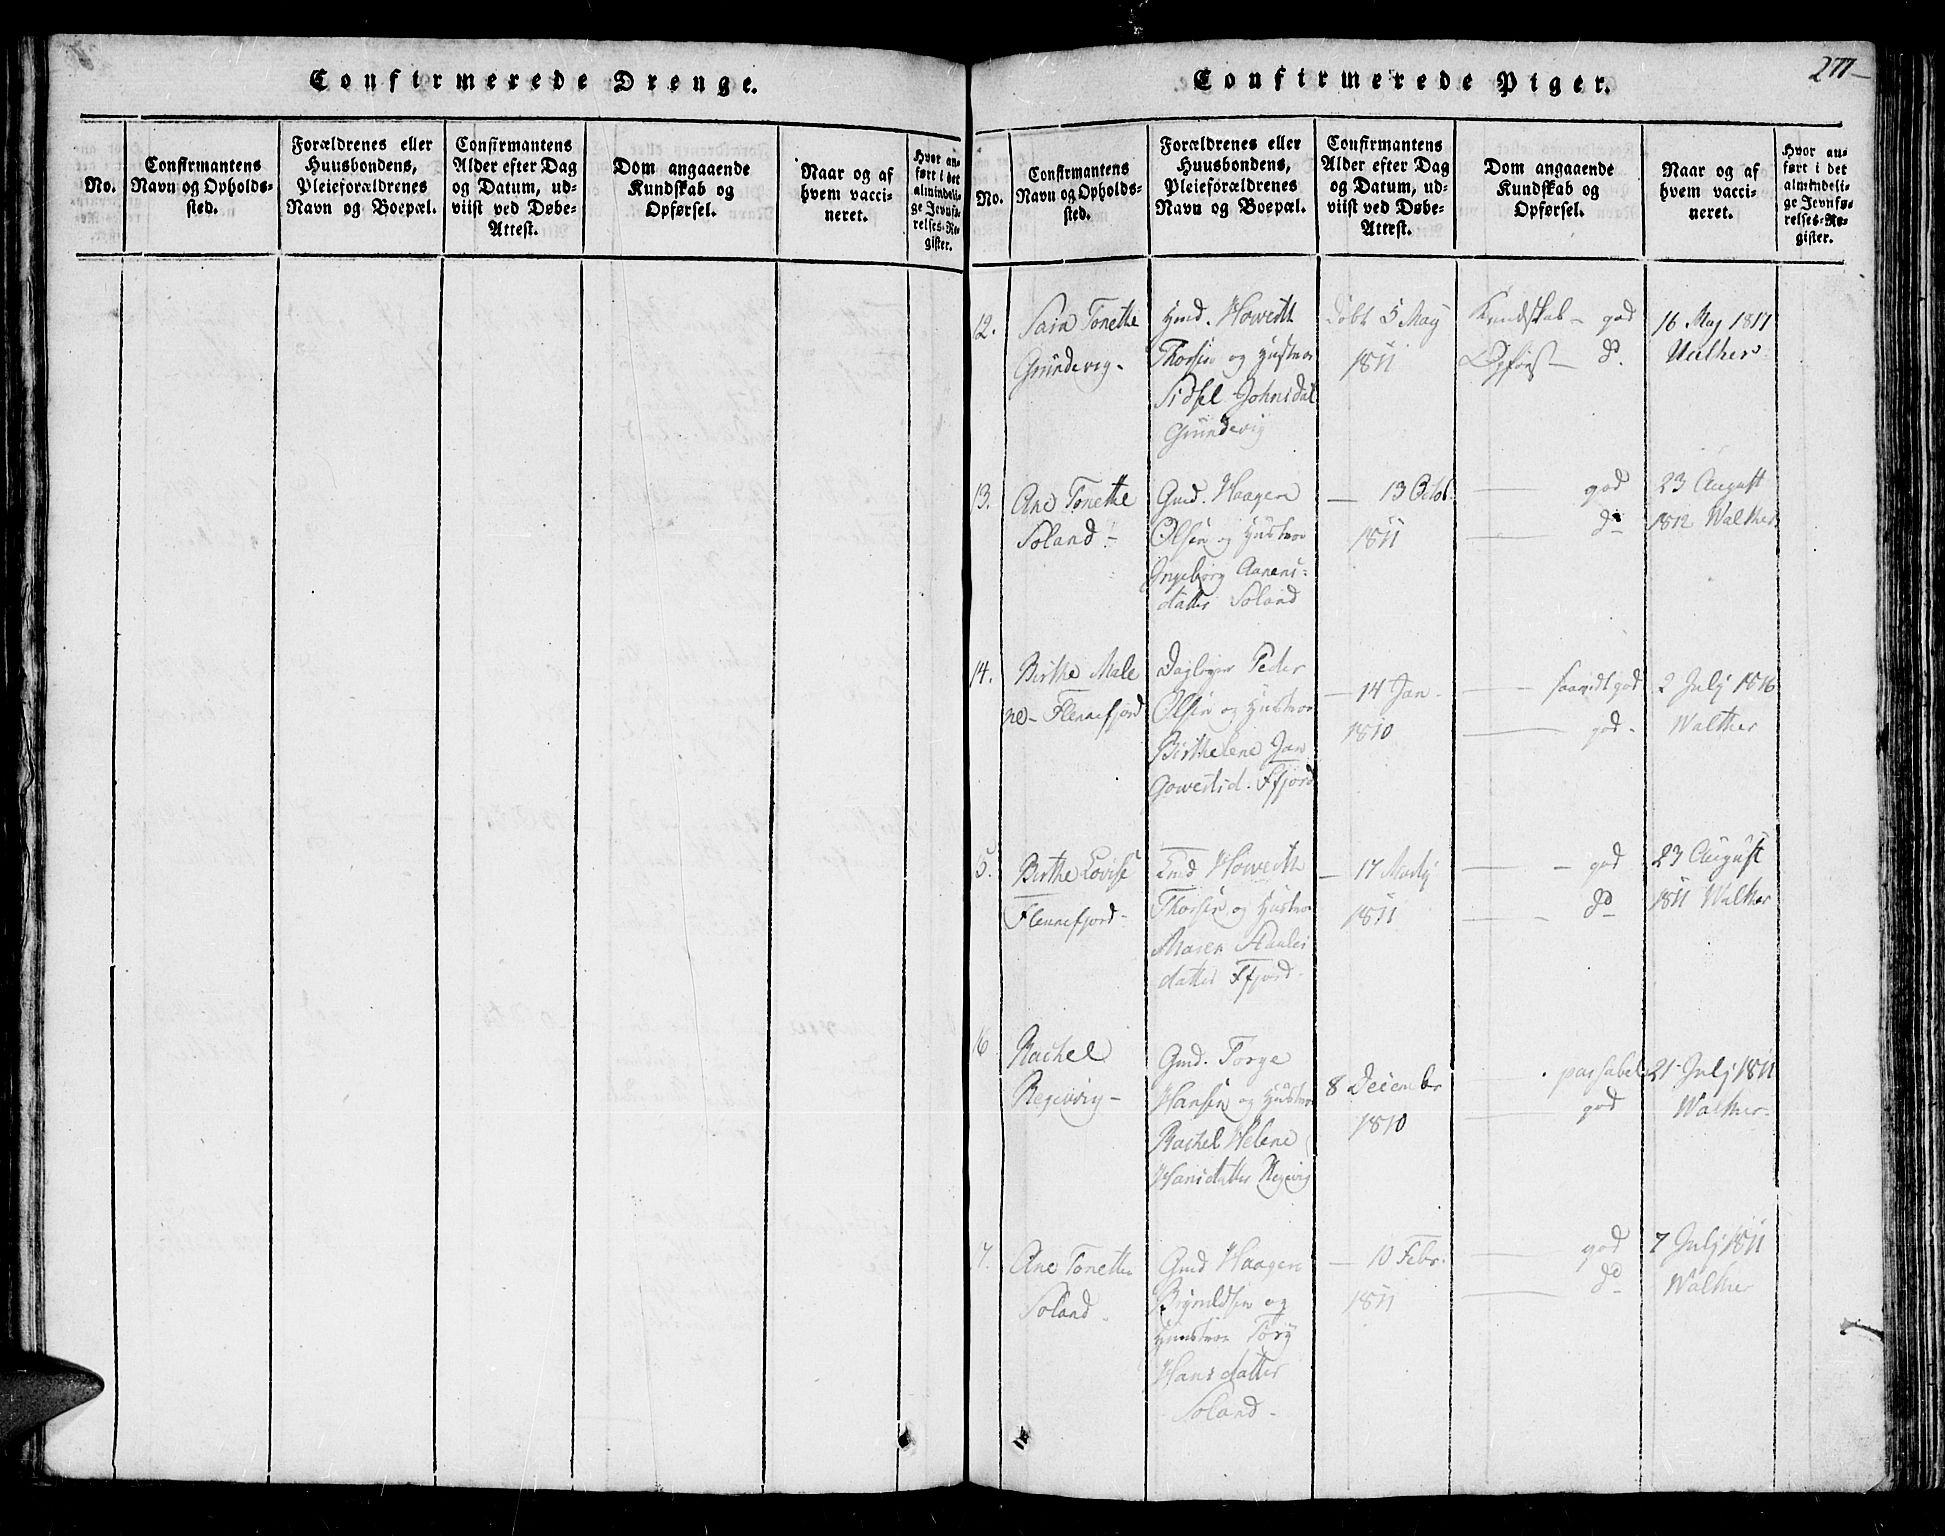 Confirmerede Drenge.
No.
Confirmantens
Navn og Opholds-
sted.
Forældrenes eller
Huusbondens,
Pleieforældrenes
Navn og Boepæl.
Confirmantens
Alder efter Dag
og Datum, ud-
viist ved Døbe-
Attest.
Dom angaaende
Kundskab og
Opførsel.
Naar og af
hvem vacci-
neret.
Hvor an-
ført i det
almindeli-
ge Jevnfø-
relses-Re-
gister.
Confirmerede Piger.
277
No.
Confirmantens
Navn og Opholds-
sted.
Forældrenes eller
Huusbondens,
Pleieforældrenes
Navn og Boepæl.
Confirmantens
Alder efter Dag
og Datum, ud-
viist ved Døbe-
Attest.
Dom angaaende
Kundskab og
Opførsel.
Naar og af
hvem vacci-
neret.
Hvor an-
ført i det
almindeli-
ge Jevnfø-
relses-Re-
gister.
12.
Sara Tonethe
Grundevig-
Howerth
Thorsen og Hustroe
Sidsel Johnsdat
Grundevig
Døbt 5 May
1811
Kundskab- god
Opførs- do.
16 May 1811
Walther
13.
Ane Tonethe
Soland-
Gmd. Haagen
Olsen og Hustroe
Ingeborg Aanens-
datter Soland
- 13 Octob
1811
god
do
23 August
1812 Walther
14.
Birthe Male
ne- Flennefjord
Peder
Olsen og Hustroe
Birthelene Jan
Ffjord
- 14 Jan.
1810
god
god-
2 July 1816
Walther
5.
Birthe Lovise
Flennefjord-
Howerth
Thorsen og Hustroe
Maren
datter Ffjord
- 17
1811
- god
do
23 August
1811 Walther
16
Rachel
Regevig-
Gmd. Torge
Hansen og Hustroe
Rachel Helene
Hansdatter Regevig
8 Decembr
1810
passabel
god
21 July 1811
Walther-
7.
Ane Tonethe
Soland-
Gmd Haagen
Brynildsen og
Huustroe Torg
Hansdatter
Soland-
- 10 Febr.
1811
god
do
7 July 1811
Walther